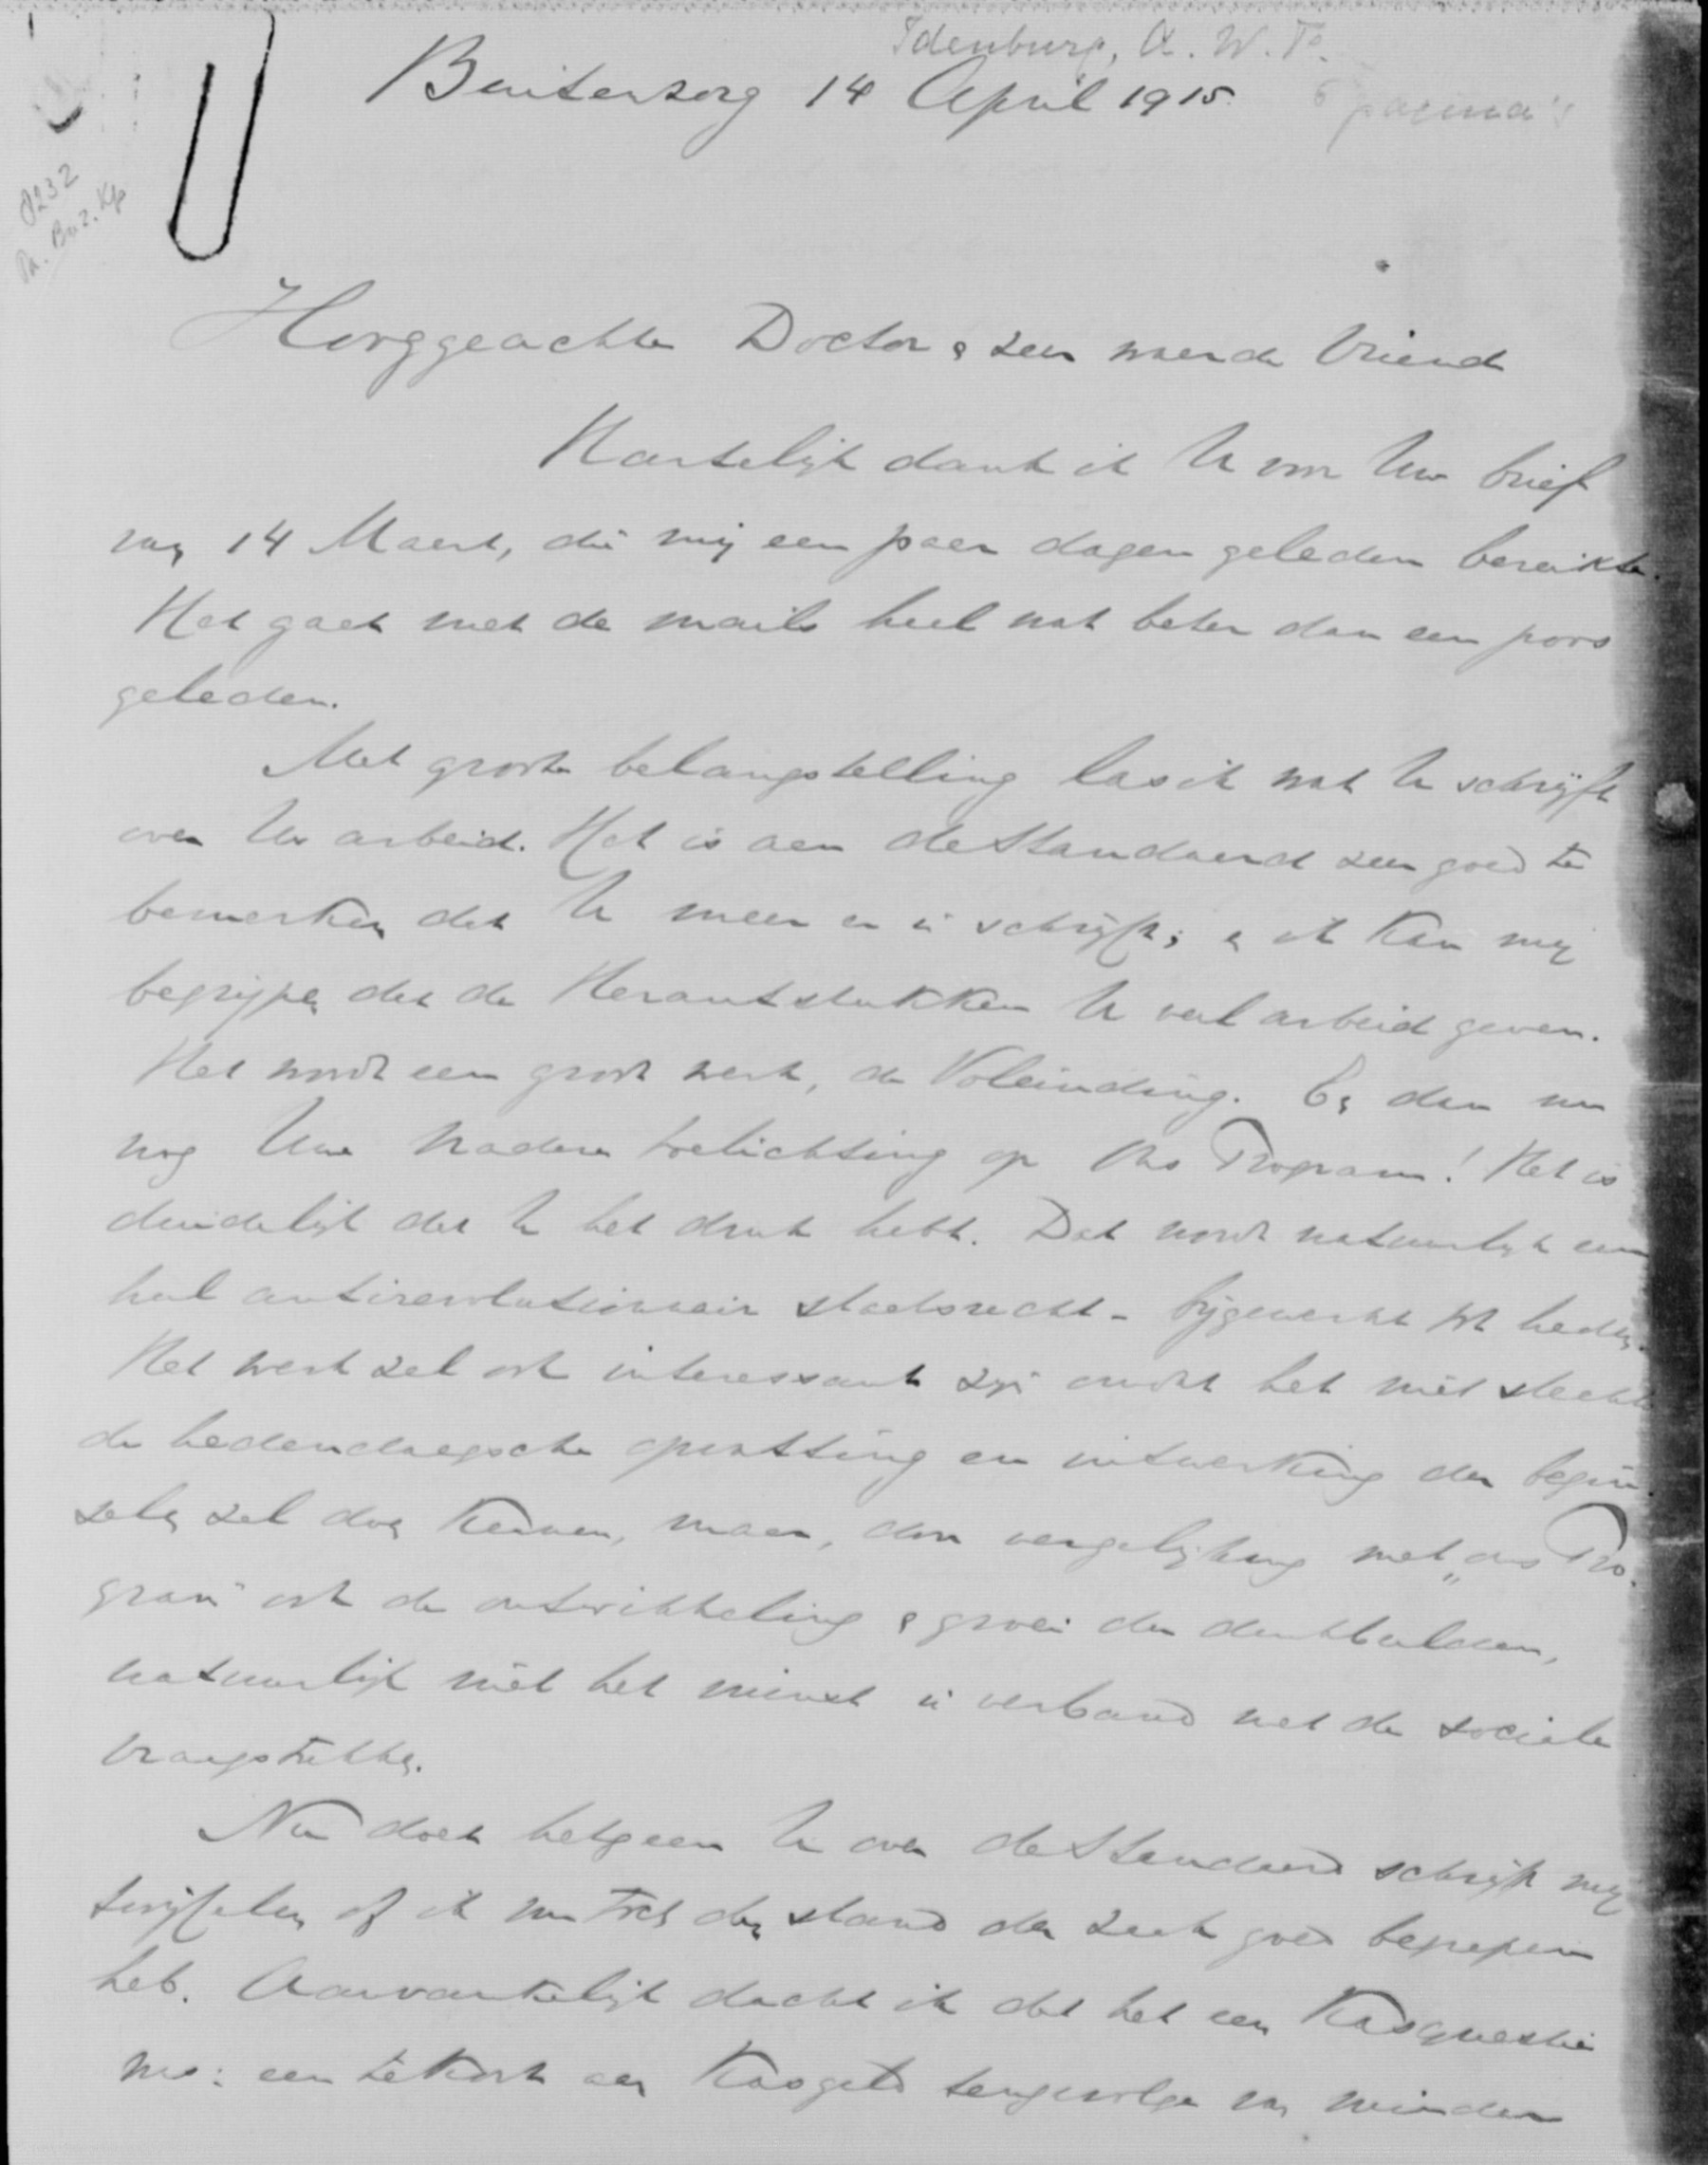 Idenburg, A. W. F.
Buitenzorg 14 April 1915.
6 pagina's
8232
Hooggeachte Doctor & zeer waarde Vriend
Hartelijk dank ik U voor Uw brief
van 14 Maart, die mij een paar dagen geleden bereikte.
Het gaat met de mails heel wat beter dan een poos
geleden.
Met groote belangstelling las ik wat U schrijft
over Uw arbeid. Het is aan de Standaard zeer goed te
bemerken dat U meer er in schrijft; & ik kan mij
begrijpen dat de Herautstukken U veel arbeid geven.
Het wordt een groot werk, de Voleinding. En dan nu
nog Uwe nadere toelichting op Ons Program! Het is
duidelijk dat U het druk hebt. Dat wordt natuurlijk een
heel antirevolutionair staatsrecht - bijgewerkt tot heden.
Het werk zal ook interessant zijn omdat het niet slechts
de hedendaagsche opvatting en uitwerking der begin-
selen zal doen kennen, maar, door vergelijking met "ons Pro-
gram" ook de ontwikkeling & groei der denkbeelden,
natuurlijk niet het minst in verband met de sociale
vraagstukken.
Nu doet hetgeen U over de Standaard schrijft mij
twijfelen of ik nu toch den stand der zaak goed begrepen
heb. Aanvankelijk dacht ik dat het een Kasquestie
was: een tekort aan Kasgeld tengevolge van minder